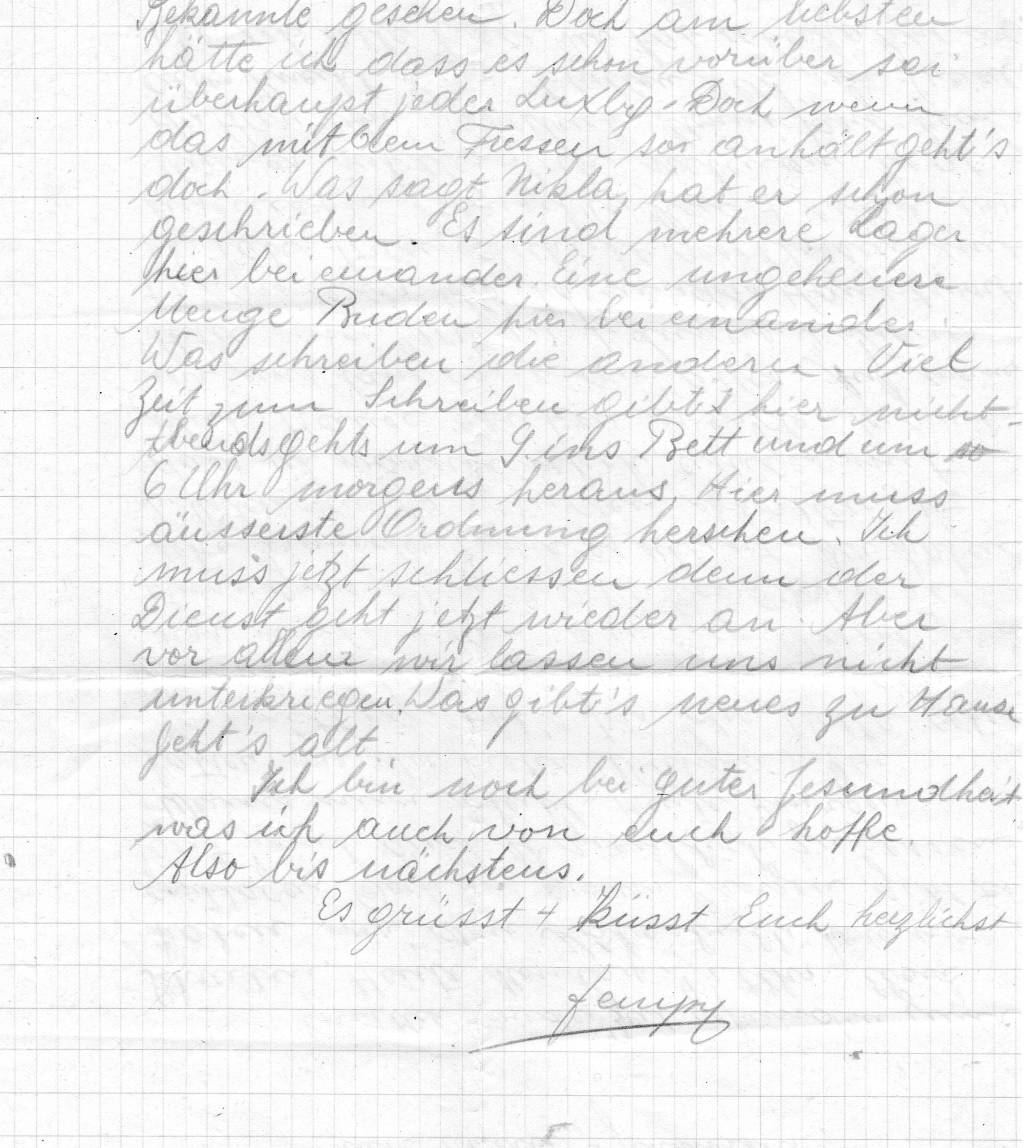 Bekannte gesehen. Doch am liebsten
hätte ich dass es schon vorüber sei
überhaupt jeder Luxbg. Doch wenn
das mit dem Fressen so anhält geht's
doch. Was sagt Nikla, hat er schon
geschrieben. Es sind mehrere Lager
hier bei einander. Eine ungeheuere
Menge Buden hier bei einander.
Was schreiben die andern. Viel
Zeit zum Schreiben gibt's hier nicht-
Abends gehts um 9 ins Bett und um
6 Uhr morgens heraus. Hier muss
äusserste Ordnung herschen. Ich
muss jetzt schliessen denn der
Dienst geht jetzt wieder an. Aber
vor allem wir lassen uns nicht
unterkriegen. Was gibt's neues zu Hause
Geht's alt
Ich bin noch bei guter Gesundheit
was ich auch von euch hoffe.
Also bis nächstens.
Es grüsst + küsst Euch herzlichst